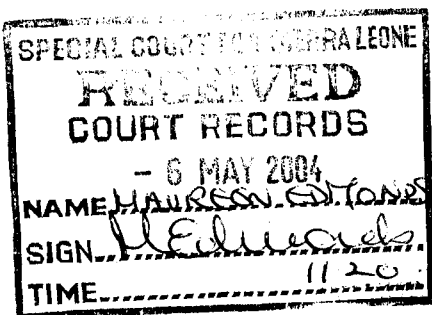 SPECIAL COURT FOR SIERRA LEONE
RECEIVED
COURT RECORDS
- 6 MAY 2004
NAME MAUREEN EDMONDS
SIGN MEdmonds
TIME 11 20